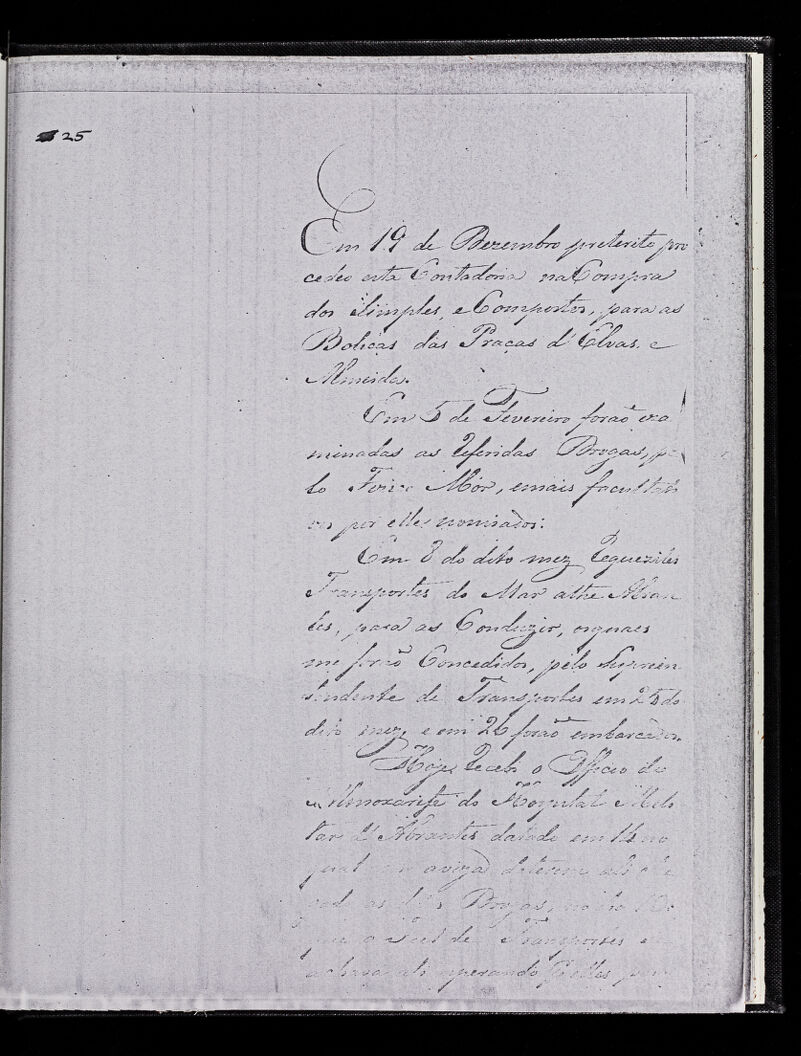 25
Em 19 de Dezembro preterito pro
cedeo esta Contadoria na Compra
dos Simples, e Compostos, para as
Boticas das Praças d'Elvas, e
Almeida.
Em 5 de Fevereiro forão exa
minadas as Referidas Drogas, pe
lo Fizico Mór, e mais facultati
vos por elle nomiados:
Em 8 do dito mez Requezilhes
Transportes do Mar athe Abran
tes, para as Conduzir, os quaes
me forão Concedidos, pelo Suprein
tendente de Transportes em 25 do
dito mez, e em 26 forão embarcados.
Hoje Recebi o Officio do
Almoxarife do Hospital Meli
tar d'Abrantes datado em 14 no
qual me aviza
as Drogas,
de Transportes
esperando